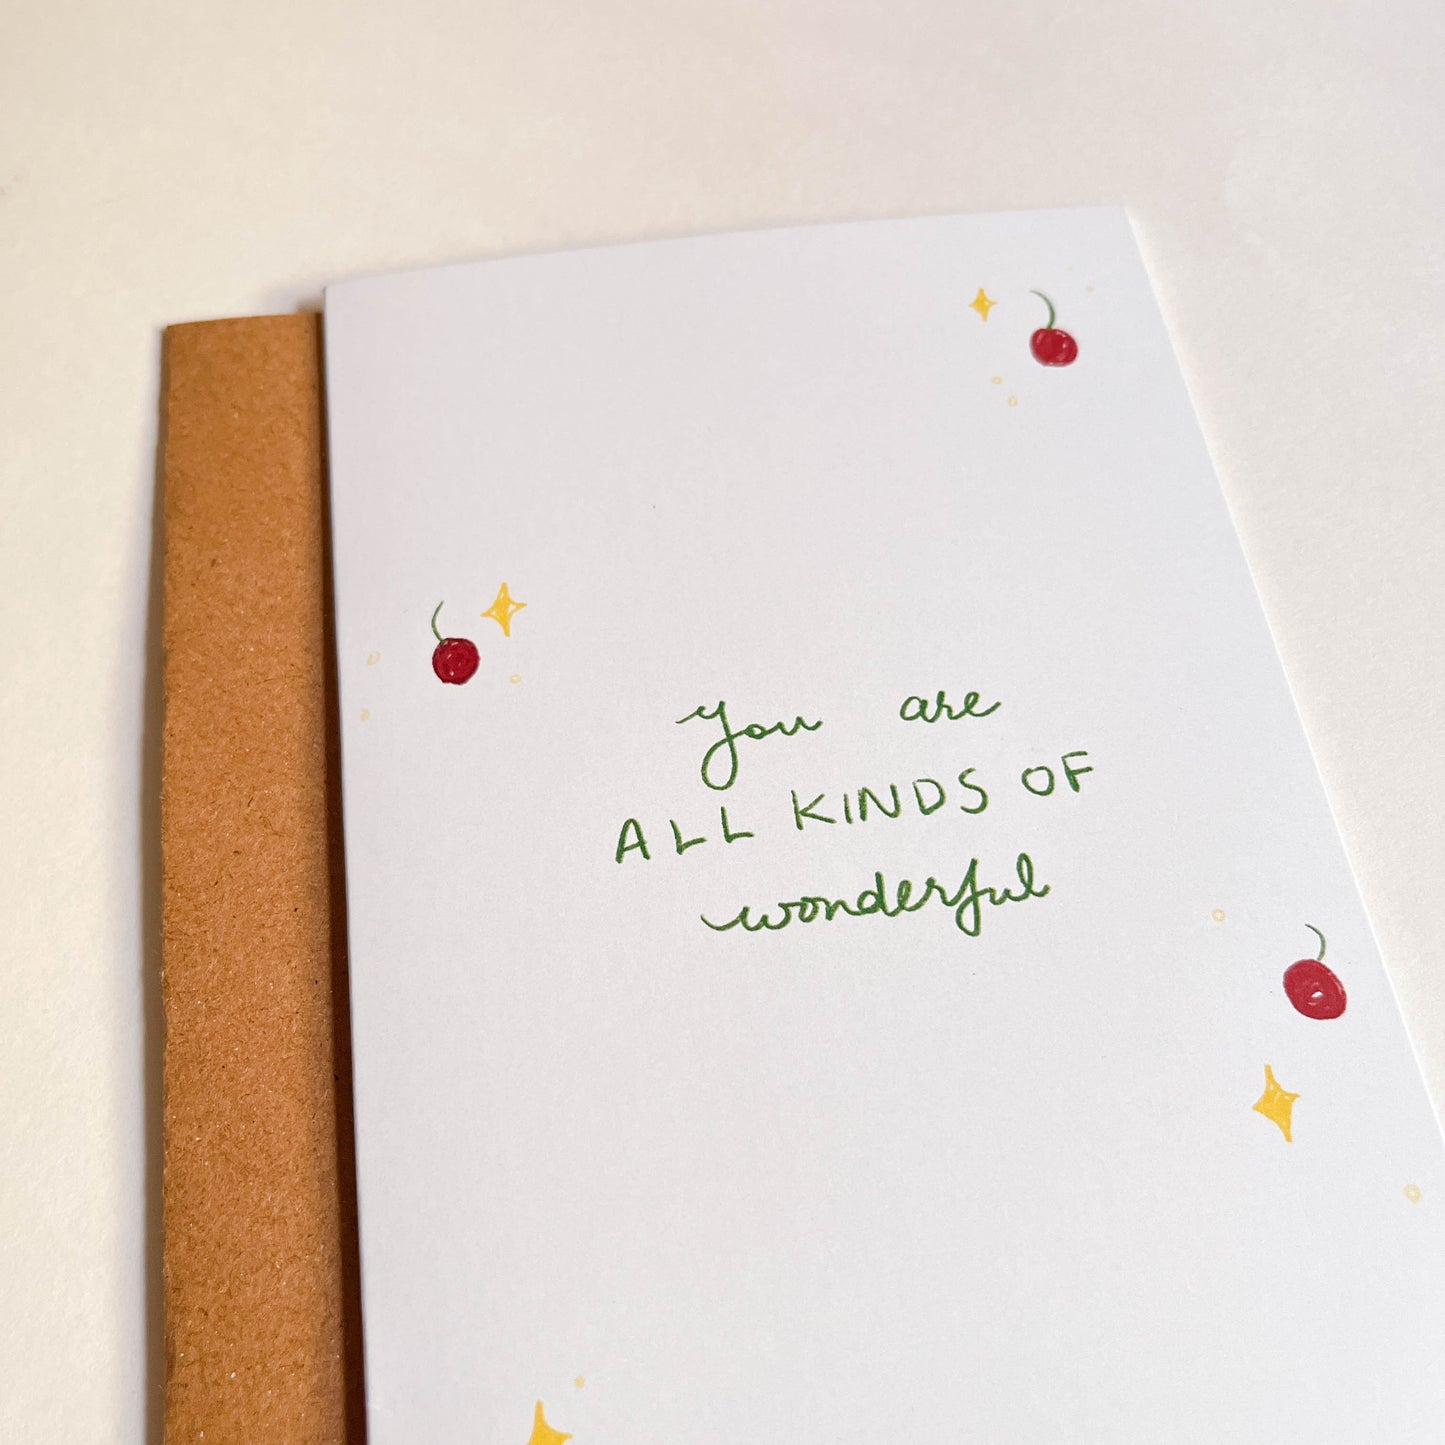 You are
ALL KINDS OF
wonderful